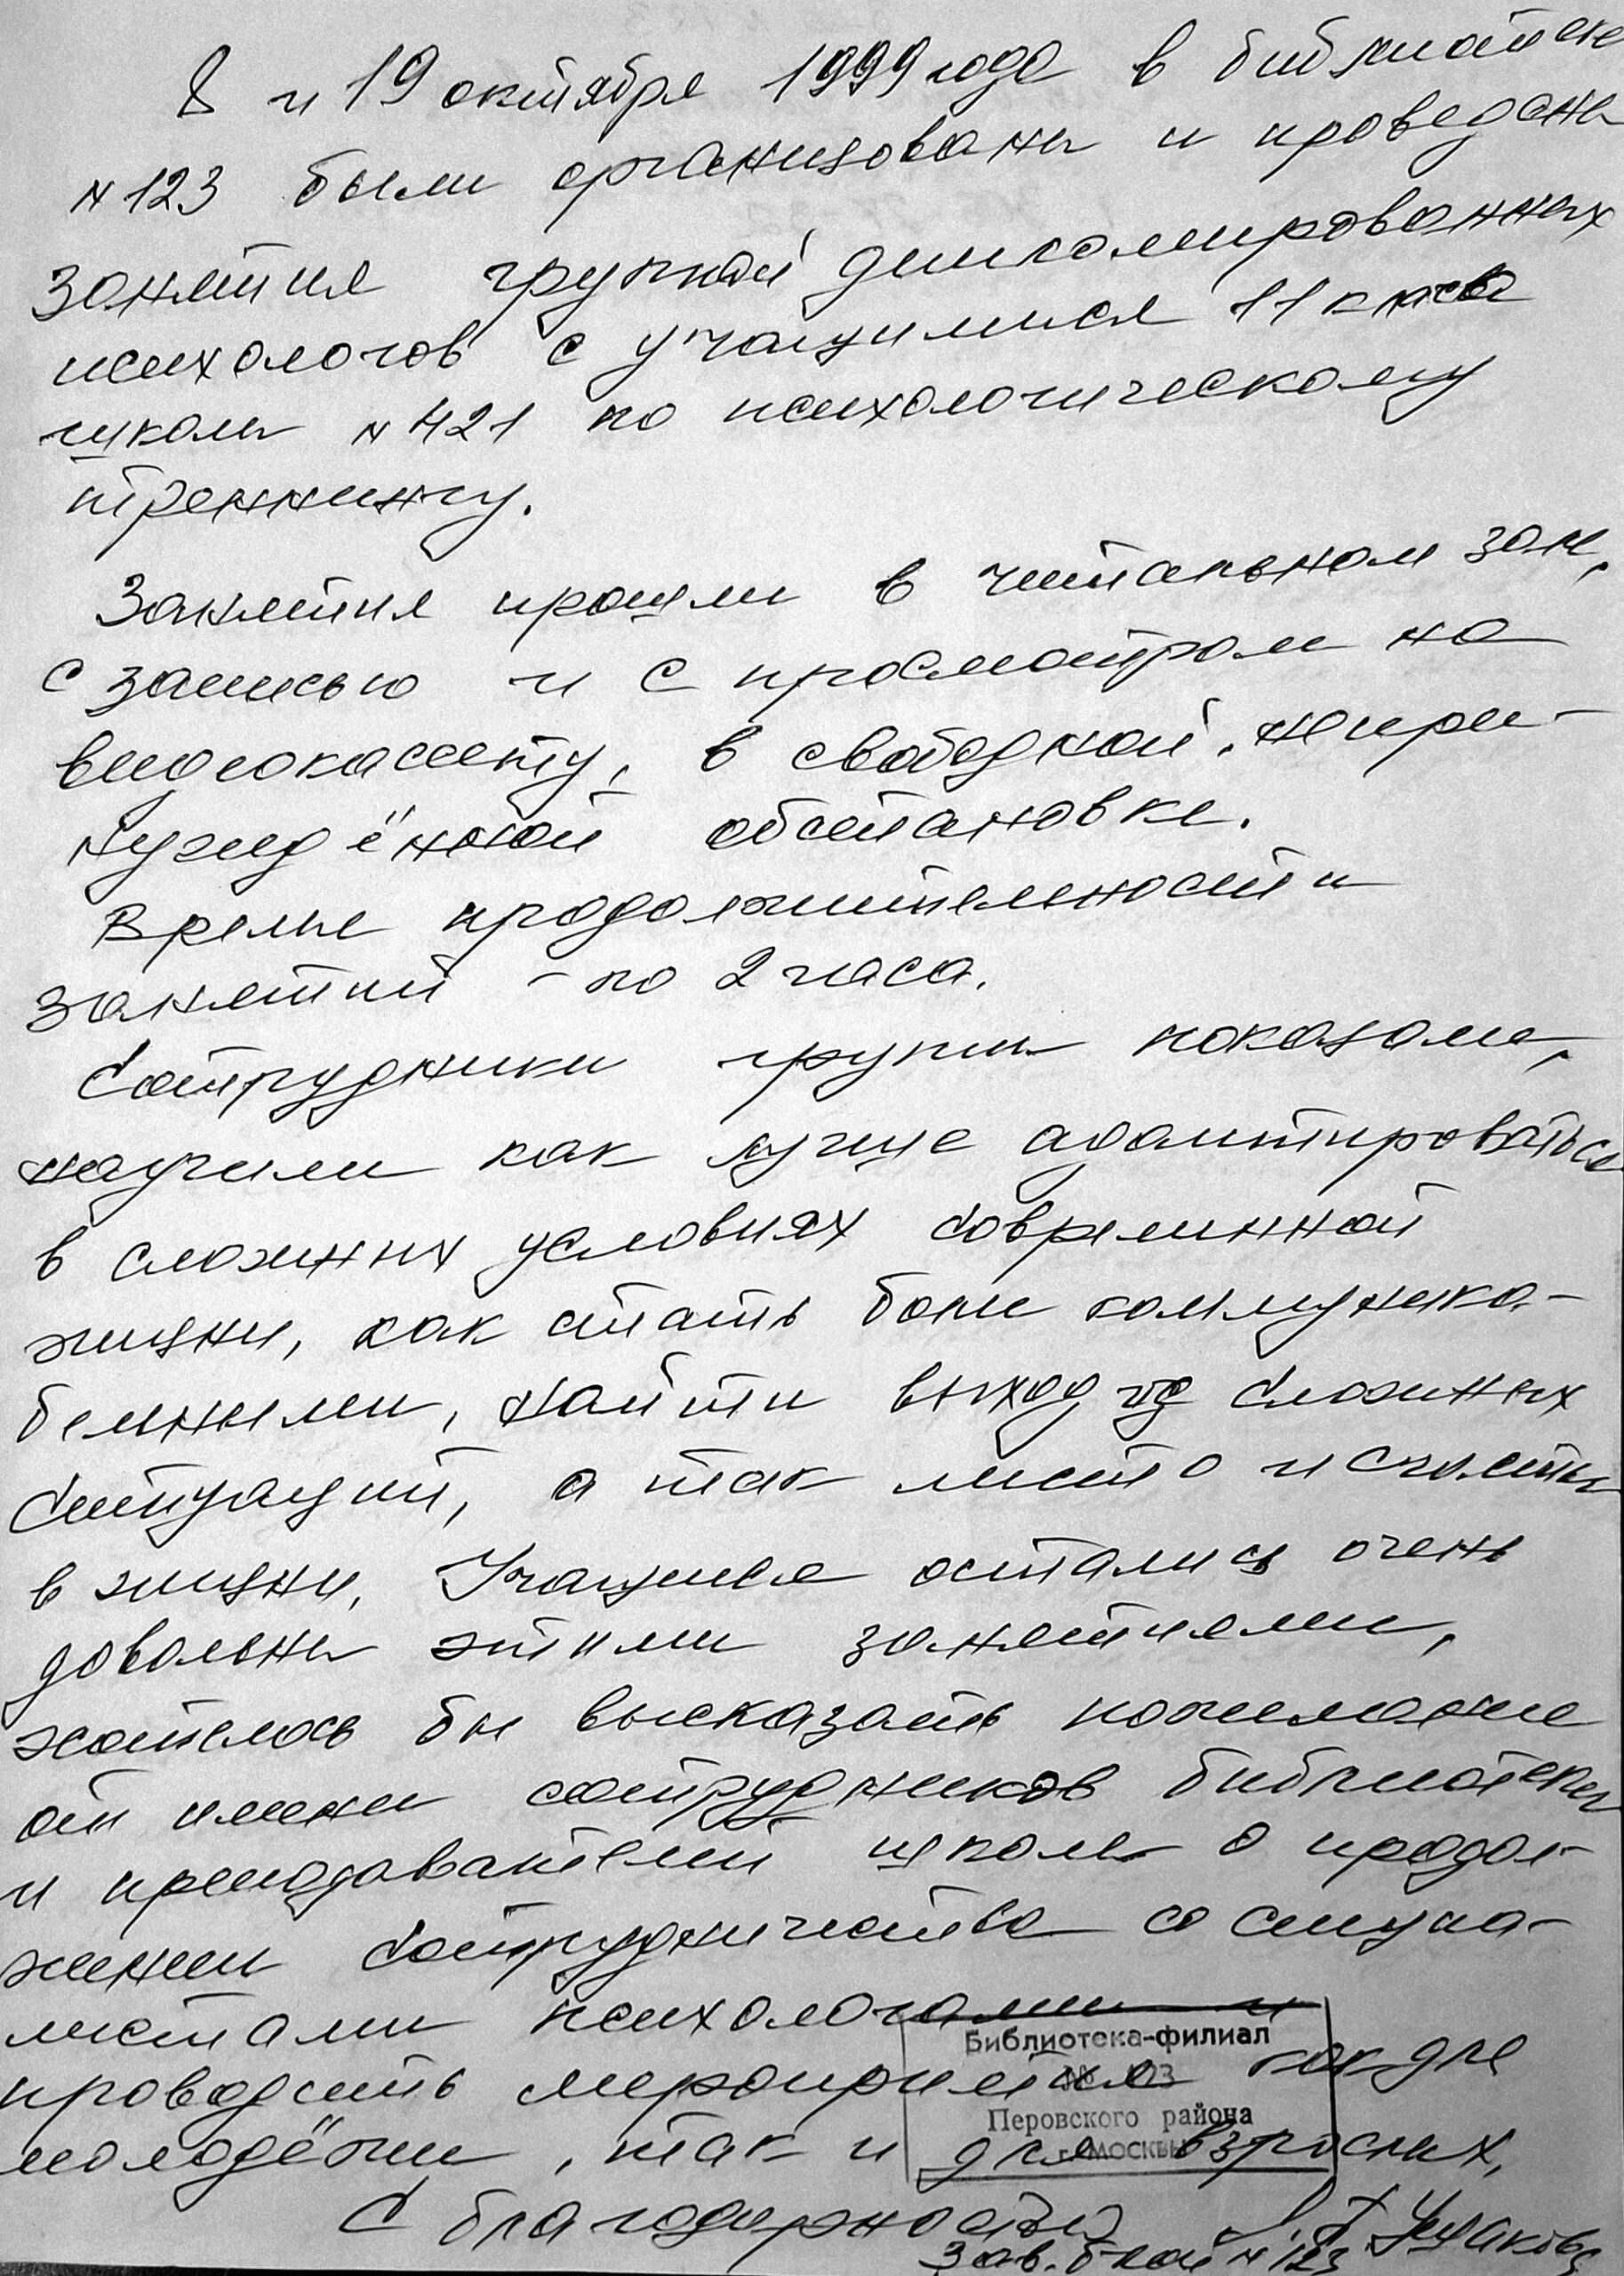 8 и 19 октября 1999 года в библиотеке
N 123 были организованы и проведены
занятия группой дипломированных
психологов с учащимися 11 класса
школы N 421 по психологическому
тренингу.
Занятия прошли в читальном зале,
с записью и с просмотром на
видеокассету, в свободной, непри-
нуждённой обстановке.
Время продолжительности
занятий - по 2 часа.
Сотрудники группы показали,
научили как лучше адаптироваться
в сложных условиях современной
жизни, как стать более коммуника-
бельными, найти выход из сложных
ситуаций, а так место и счастье
в жизни. Учащиеся остались очень
довольны этими занятиями,
хотелось бы высказать пожелание
от имени сотрудников библиотеки
и преподавателей школы о продол-
жении сотрудничества со специа-
листами психологами и
проводить мероприятия как для
молодёжи, так и для взрослых.
Библиотека-филиал
№ 123
Перовского района
г. МОСКВЫ
С благодарностью
Ушакова
Зав. б-кой N 123